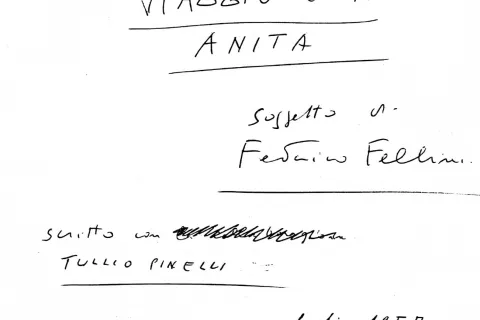 VIAGGIO CON
ANITA
Soggetto di
Federico Fellini
scritto con
TULLIO PINELLI
luglio 1957